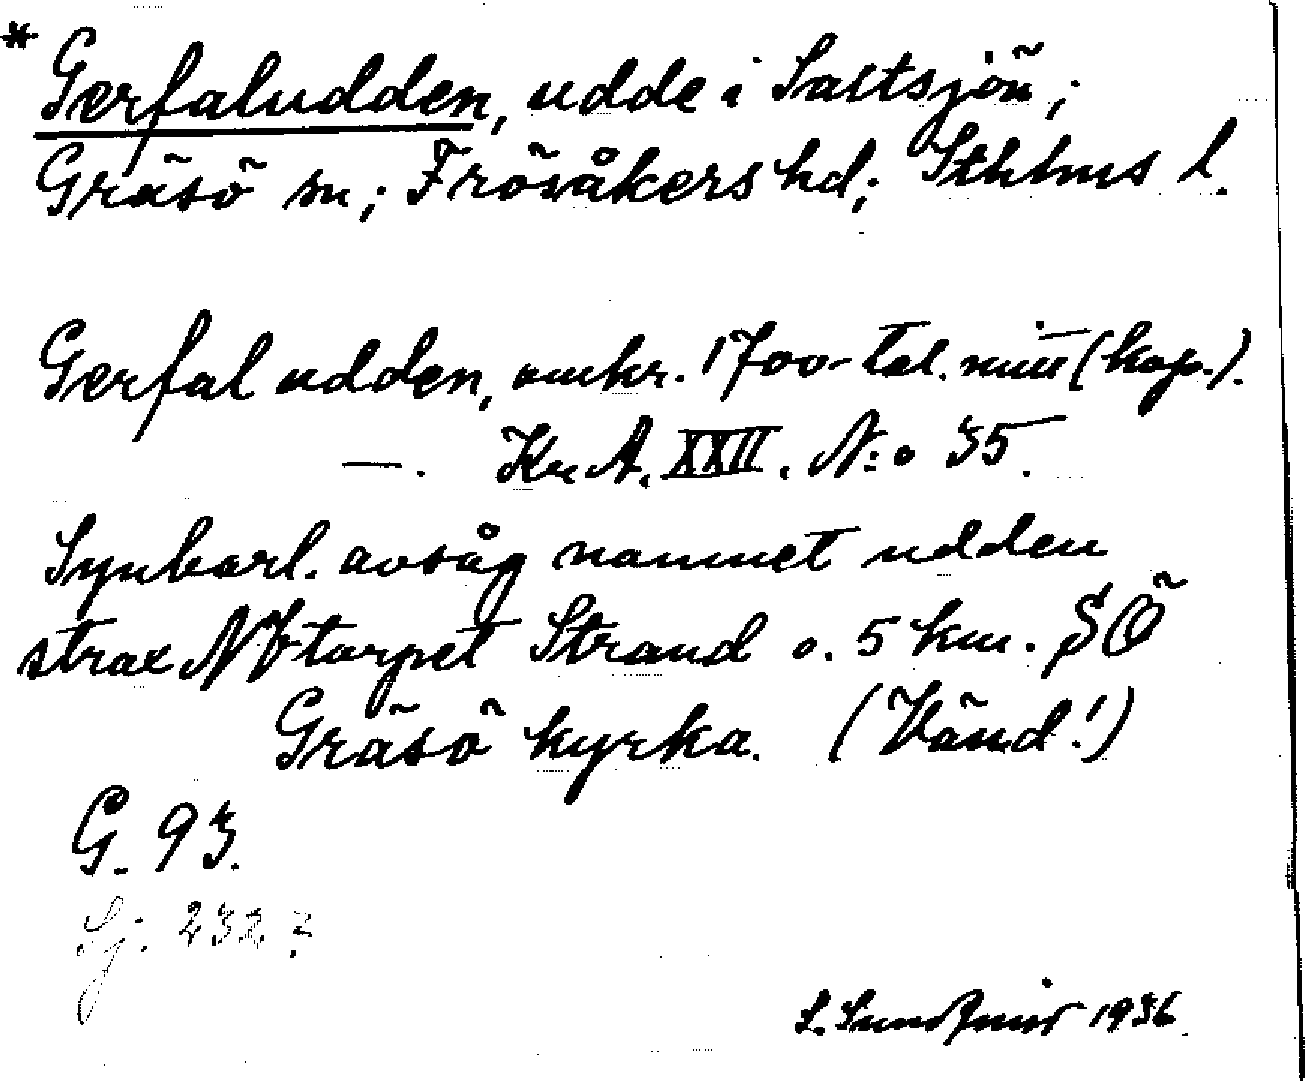 * Gerfaludden, udde i Saltsjön;
Gräsö sn; Frösåkers hd; Sthlms l.
Gerfal udden, omkr. 1700-tal. mitt (kop.).
—. Kr. A. XXII. N:o 35.
Synbarl. avsåg namnet udden
strax NV torpet Strand o. 5 km. SÖ
Gräsö kyrka. (Vänd!)
G. 93.
Sj. 232 ?
S. 1936